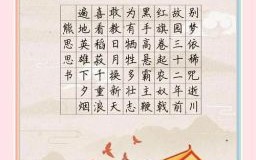 别梦依稀咒逝川
故园三十二年前
红旗卷起农奴戟
黑手高悬霸主鞭
为有牺牲多壮志
敢教日月换新天
喜看稻菽千重浪
遍地英雄下夕烟
熊思思书